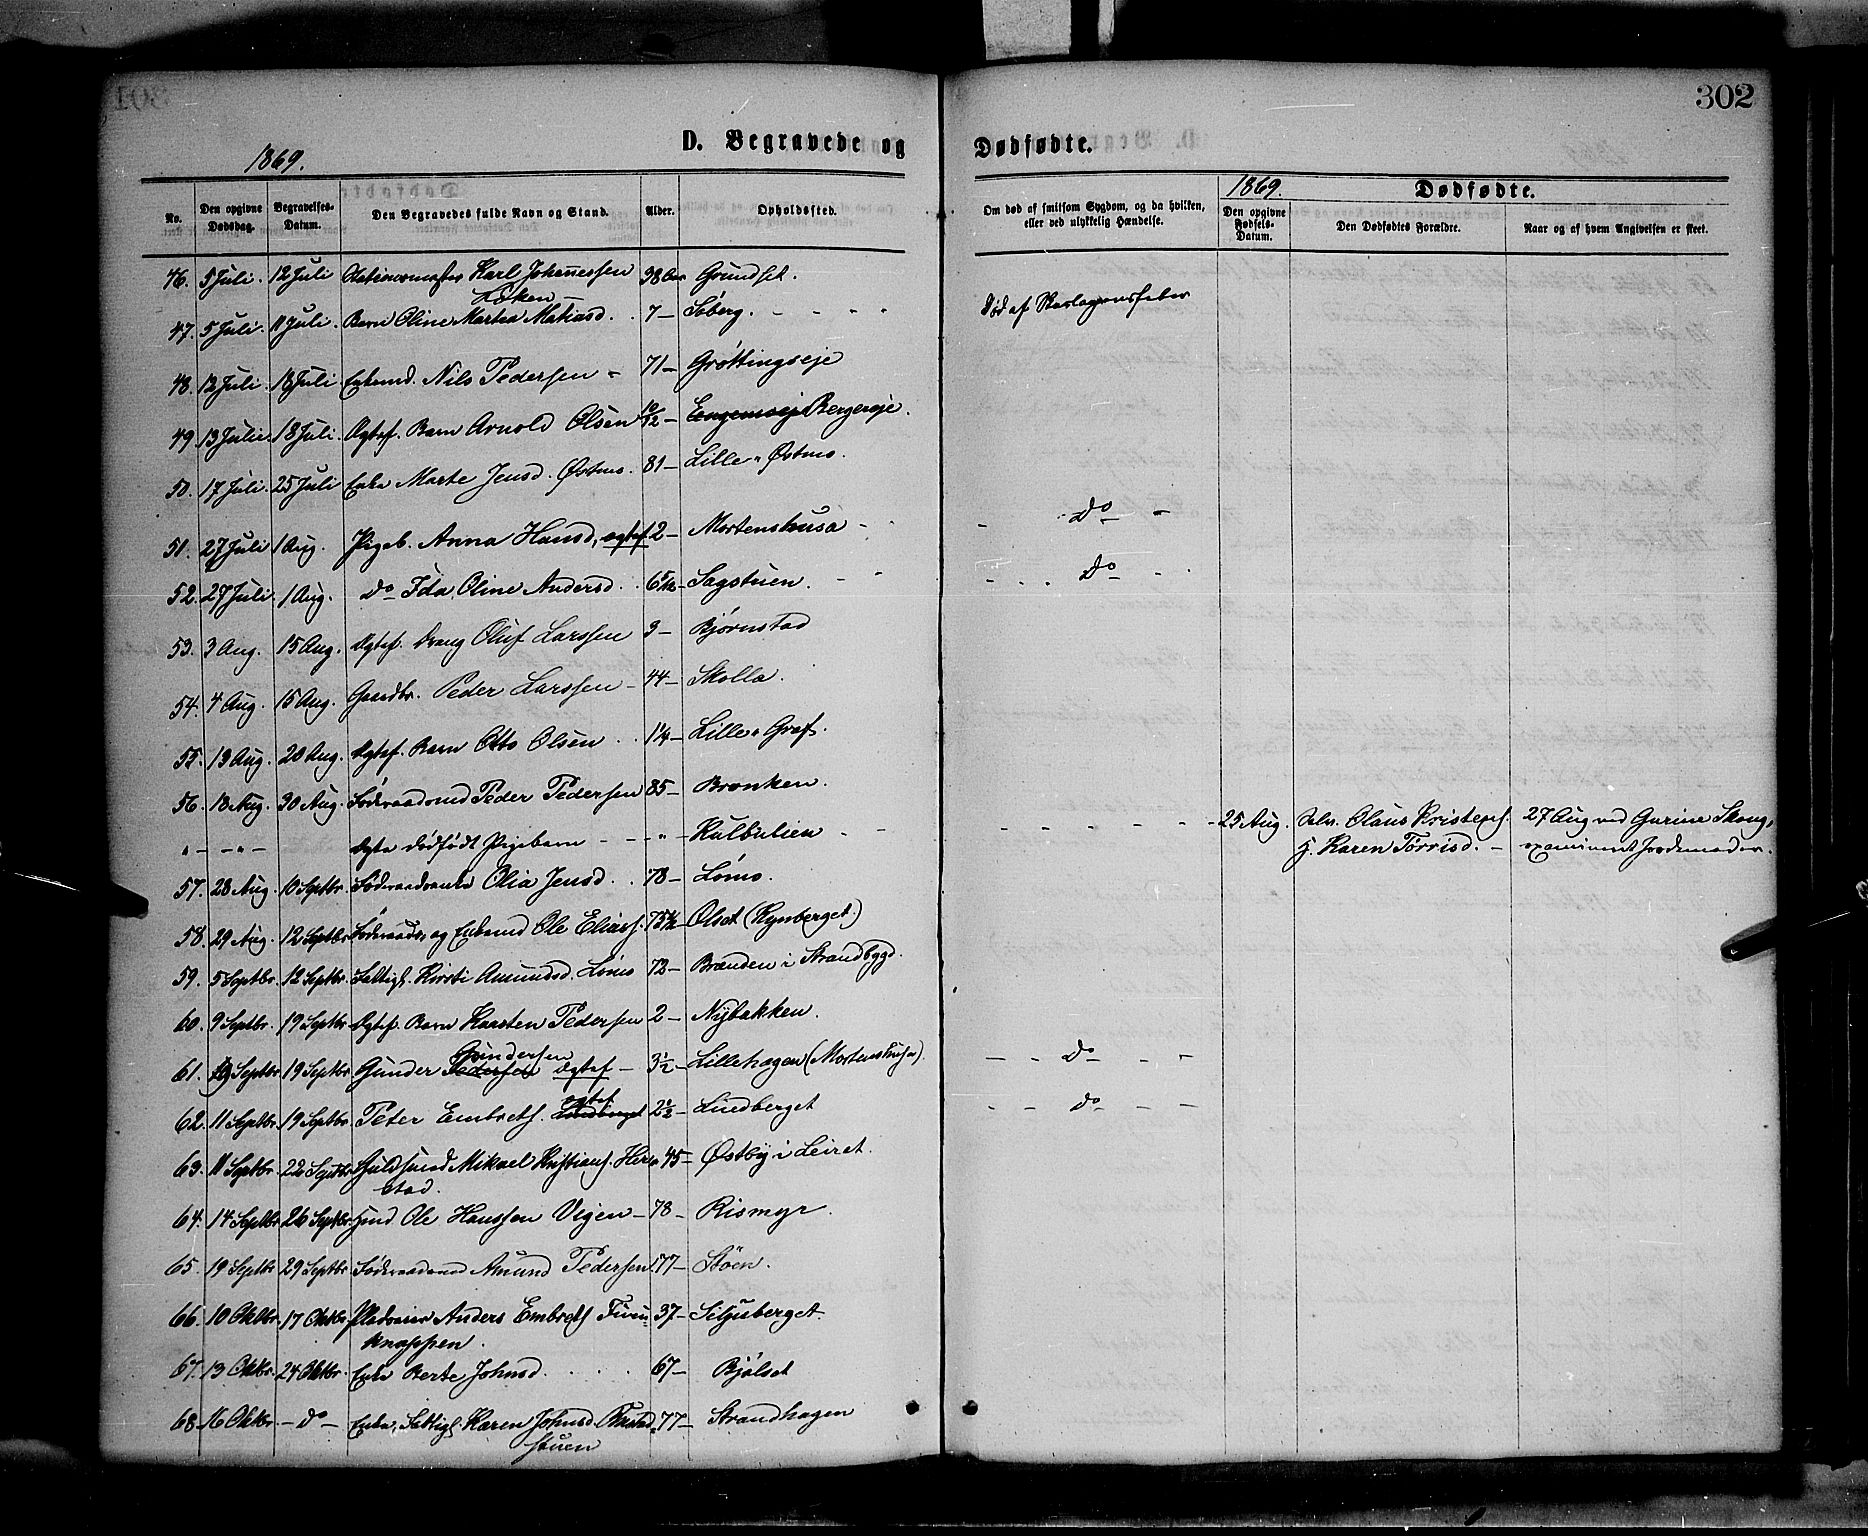 302
D. Begravede og Dødfødte.
1869.
1869. Dødfødte.
No. | Den opgivne Dødsdag. | Begravelses-Datum. | Den Begravedes fulde Navn og Stand. | Alder. | Opholdssted. | Om død af smitsom Sygdom, og da hvilken, eller ved ulykkelig Hændelse. | Den opgivne Fødsels-Datum. | Den Dødfødtes Forældre. | Naar og af hvem Angivelsen er skeet.
46. 5 Juli. 12 Juli Stationsmester Karl Johannessen 38 Aar Grundset.
Løken
47. 5 Juli. 11 Juli. Barn Oline Martea Matiasd. 7 – Søberg. Død af Skarlagensfeber
48. 12 Juli. 18 Juli Enkemd. Nils Pedersen 71 – Grøttingseje
49. 13 Julie 18 Juli. Ægtef. Barn Arnold Olsen 10/12 – Bergereje.
50. 17 Juli. 25 Juli Enke Marte Jensd. Østmo. 81 – Lille-Østmo.
51. 27 Juli 1 Aug. Pigeb. Anna Hansd, ægtef. 2 – Mortenshusa – Do –
52. 27 Juli. 1 Aug. Do Ida Oline Andersd. 6 5/12 – Sagstuen. – Do –
53. 3 Aug. 15 Aug. Ægtef. Dreng Oluf Larssen 3 – Bjørnstad
54. 4 Aug. 15 Aug. Gaardbr. Peder Larssen – 44 – Skolla.
55. 13 Aug. 20 Aug. Ægtef. Barn Otto Olsen 1 1/4 – Lille-Graf.
56. 18 Aug. 30 Aug. Føderaadsmd Peder Pedersen 85 – Brenken.
" – – " – Ægte dødfødt Pigebarn – – " – Kulbulien – 25 Aug. Selv. Olaus Kristens. 27 Aug ved Gurine Skoug,
H. Karen Torrisd. – examineret Jordemoder.
57. 28 Aug. 10 Septbr. Føderaadsenke Olia Jensd. 78 – Lømo.
58. 29 Aug. 12 Septbr. Føderaads og Enkemd Ole Eliass. 75 1/2 – Olset (Kynberget)
59. 5 Septbr. 12 Septbr. Fattigl. Kirsti Amundsd. Lømo 72 – Brænden i Strandbygd.
60. 9 Septbr. 19 Septbr. Ægtef. Barn Karsten Pedersen 2 – Nybakken.
61. 9 Septbr 19 Septbr. Gunder Pedersen Gundersen ægtef – 3 1/2 – Lillehagen (Mortenshusa). – Do –
62. 11 Septbr. 19 Septbr. Peter Embrets. Lindberget ægtef 2 1/2 – Lindberget – Do –
63. 11 Septbr. 22 Septbr. Guldsmed Mikael Kristians. Her- 45 – Østby i Leiret.
stad.
64. 14 Septbr. 26 Septbr. Hmd Ole Hanssen Vigen – 78 – Rismyr.
65. 19 Septbr 29 Septbr. Føderaadsmd Amund Pedersen 77 – Støen.
66. 10 Oktbr. 17 Oktbr. Pladseier Anders Embrets Furu- 37 – Siljuberget.
knappen.
67. 13 Oktbr. 24 Oktbr. Enke Berte Johnsd. 67 – Bjølset
68. 16 Oktbr. – Do – Enke, Fattigl. Karen Johnsd. 77 – Strandhagen